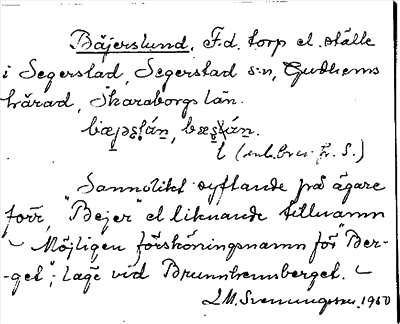 Bäjerslund. F.d. torp el. ställe
i Segerstad, Segerstad s:n, Gudhems
härad, Skaraborgs län.
(enl. brev fr. S.)
Sannolikt syftande på ägare
förr, "Bejer" el liknande tillnamn
Möjligen förskö̈ningsnamn för "Ber-
-get"; läge vid Brunnhemsberget.
I.M. Svenungsson. 1950